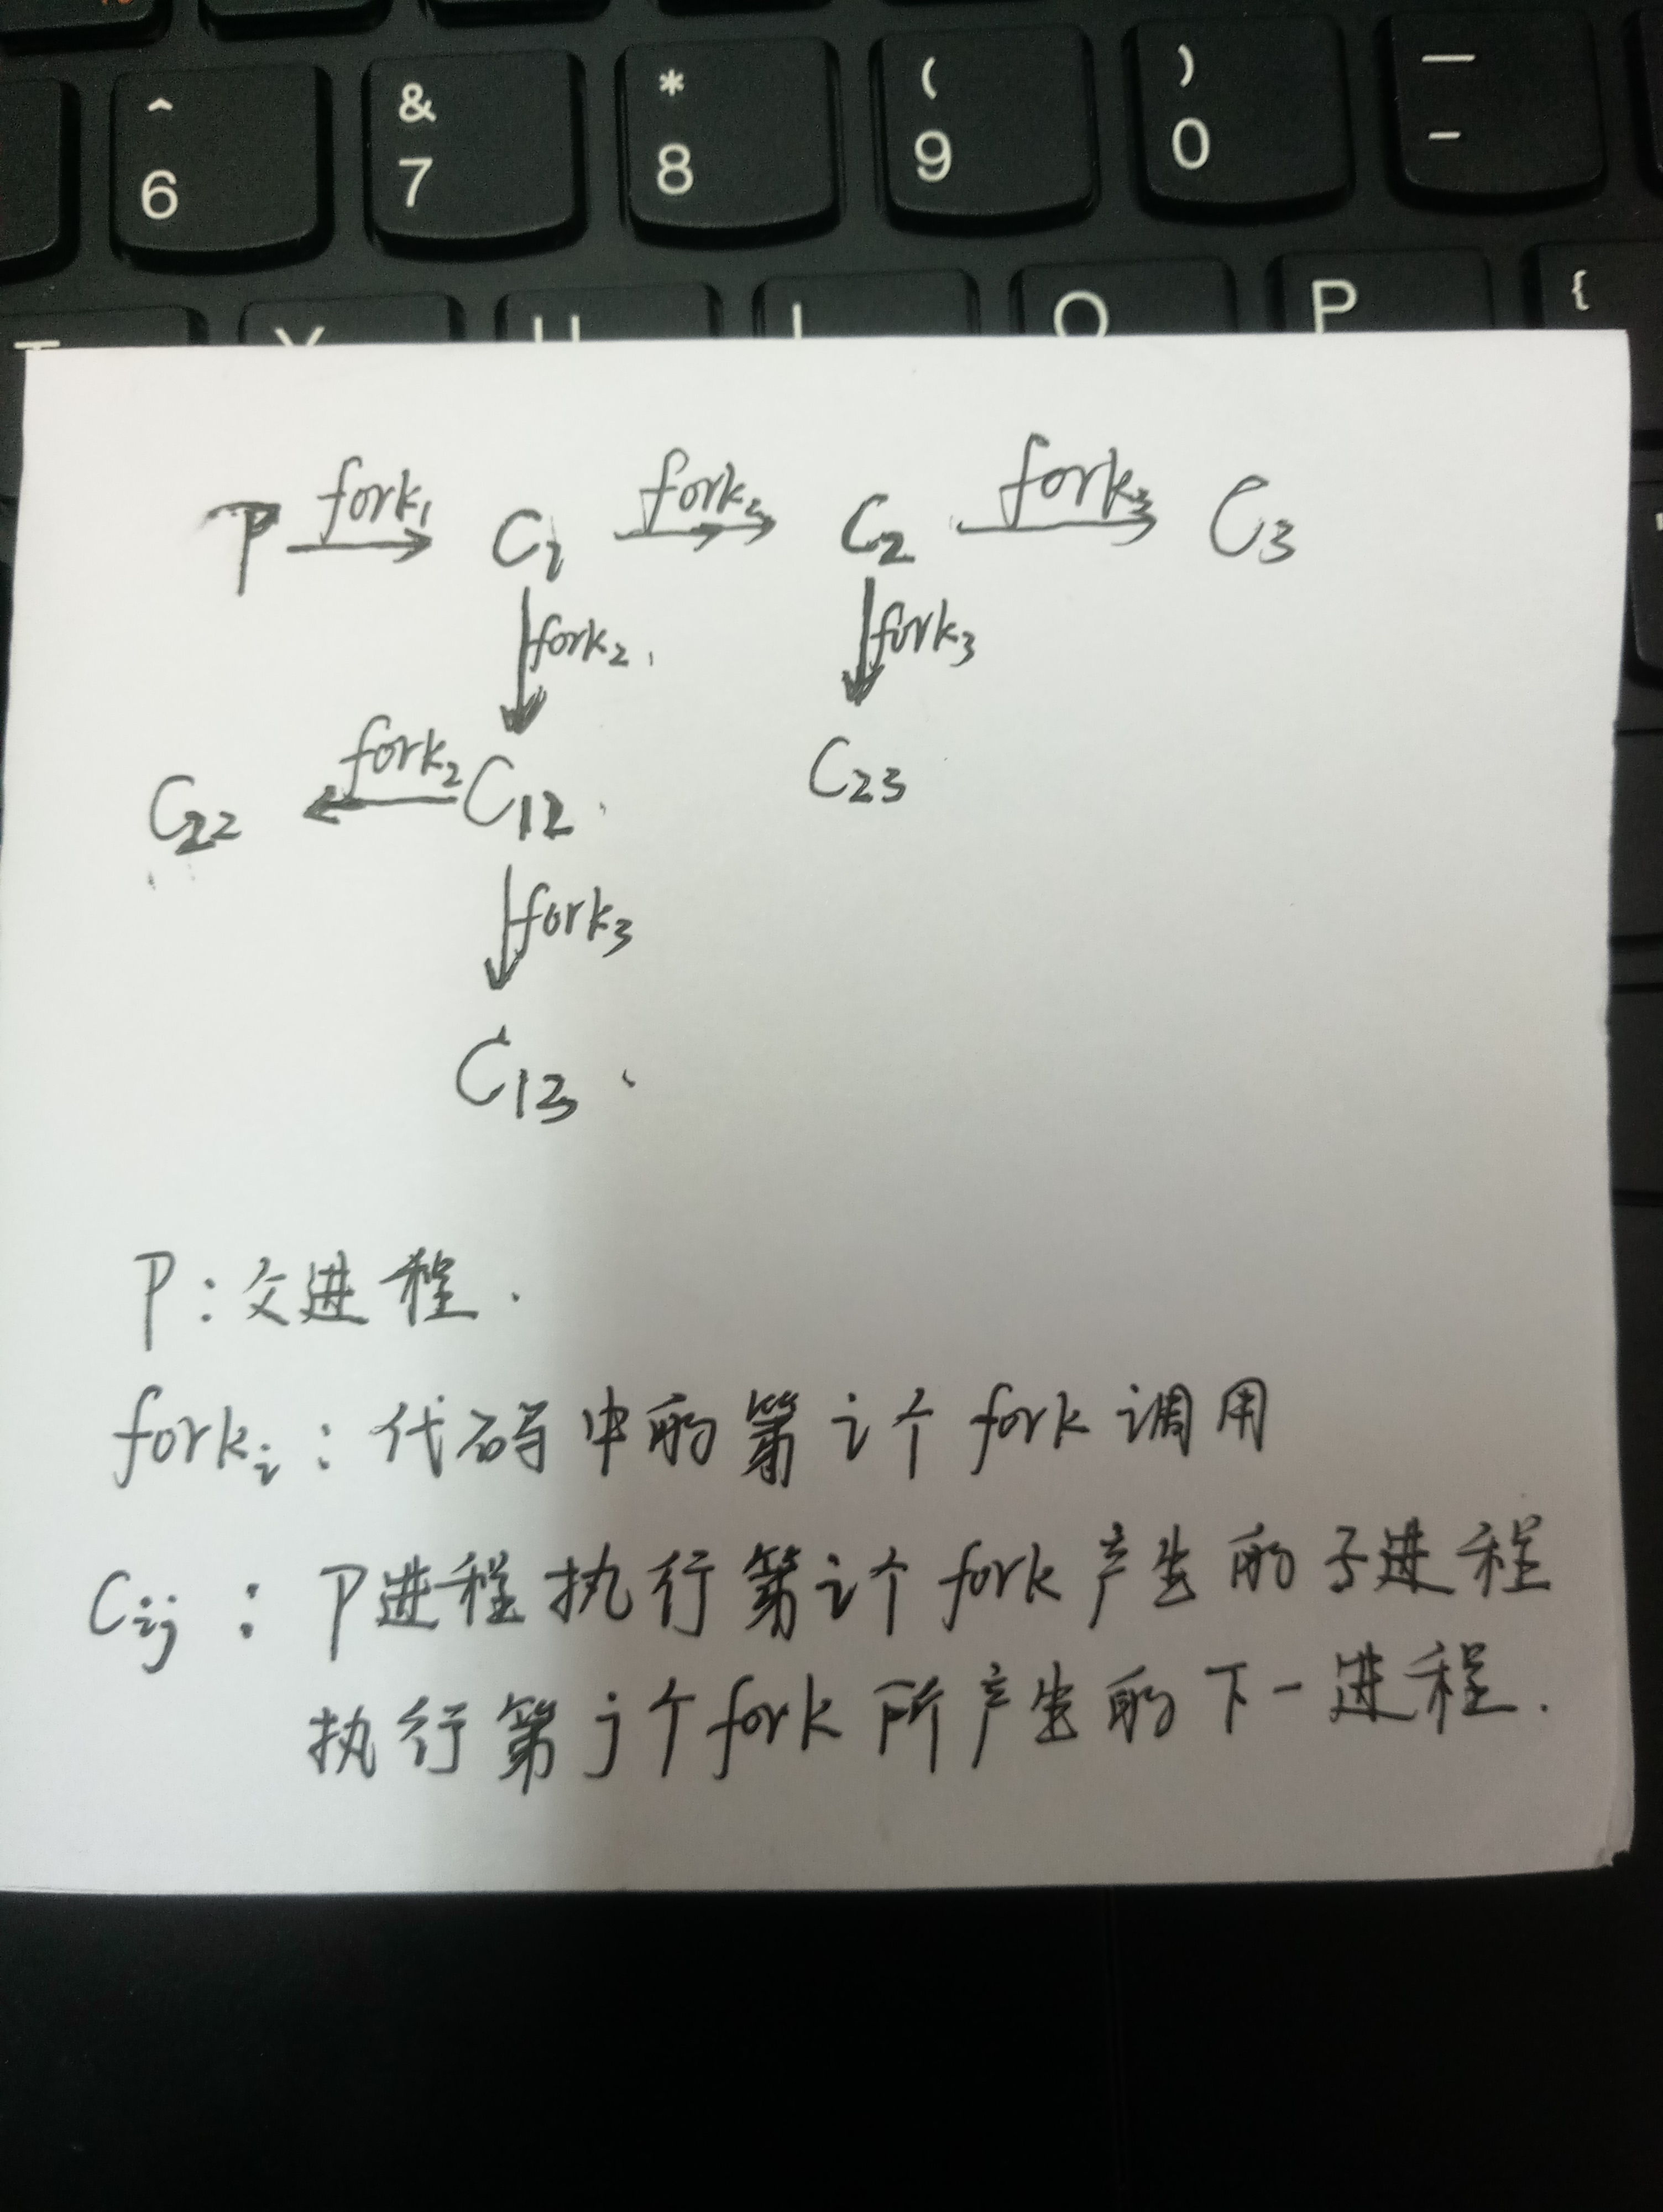 ^ & * ( ) —
6 7 8 9 0 -
O P {
P fork₁ C₁ fork₂ C₂ fork₃ C₃
fork₂ fork₃
C₂₂ fork₂ C₁₂ C₂₃
fork₃
C₁₃
P：父进程.
forkᵢ：代码中的第i个fork调用
Cᵢⱼ：P进程执行第i个fork产生的子进程
执行第j个fork所产生的下一进程.